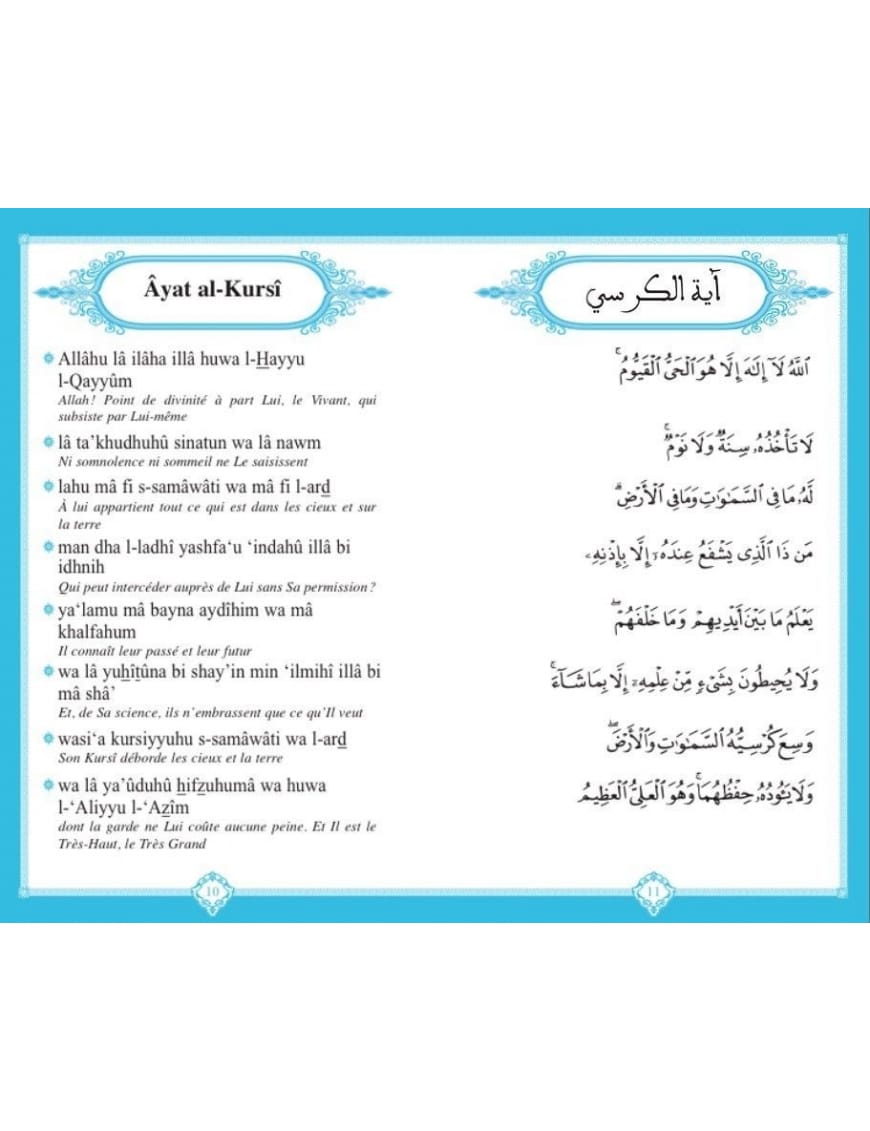 Âyat al-Kursî
Allâhu lâ ilâha illâ huwa l-Hayyu
l-Qayyûm
Allah! Point de divinité à part Lui, le Vivant, qui
subsiste par Lui-même
lâ ta’khudhuhû sinatun wa lâ nawm
Ni somnolence ni sommeil ne Le saisissent
lahu mâ fî s-samâwâti wa mâ fî l-ard
À lui appartient tout ce qui est dans les cieux et sur
la terre
man dha l-ladhî yashfa‘u ‘indahû illâ bi
idhnih
Qui peut intercéder auprès de Lui sans Sa permission ?
ya‘lamu mâ bayna aydîhim wa mâ
khalfahum
Il connaît leur passé et leur futur
wa lâ yuhîtûna bi shay’in min ‘ilmihî illâ bi
mâ shâ’
Et, de Sa science, ils n’embrassent que ce qu’Il veut
wasi‘a kursiyyuhu s-samâwâti wa l-ard
Son Kursî déborde les cieux et la terre
wa lâ ya’ûduhû hifzuhumâ wa huwa
l-‘Aliyyu l-‘Azîm
dont la garde ne Lui coûte aucune peine. Et Il est le
Très-Haut, le Très Grand
10
آية الكرسي
ٱللَّهُ لَآ إِلَٰهَ إِلَّا هُوَ ٱلْحَىُّ ٱلْقَيُّومُ ۚ
لَا تَأْخُذُهُۥ سِنَةٌ وَلَا نَوْمٌ ۚ
لَّهُۥ مَا فِى ٱلسَّمَٰوَٰتِ وَمَا فِى ٱلْأَرْضِ ۗ
مَن ذَا ٱلَّذِى يَشْفَعُ عِندَهُۥٓ إِلَّا بِإِذْنِهِۦ
يَعْلَمُ مَا بَيْنَ أَيْدِيهِمْ وَمَا خَلْفَهُمْ ۖ
وَلَا يُحِيطُونَ بِشَىْءٍ مِّنْ عِلْمِهِۦٓ إِلَّا بِمَا شَآءَ ۚ
وَسِعَ كُرْسِيُّهُ ٱلسَّمَٰوَٰتِ وَٱلْأَرْضَ ۖ
وَلَا يَـُٔودُهُۥ حِفْظُهُمَا ۚ وَهُوَ ٱلْعَلِىُّ ٱلْعَظِيمُ
11